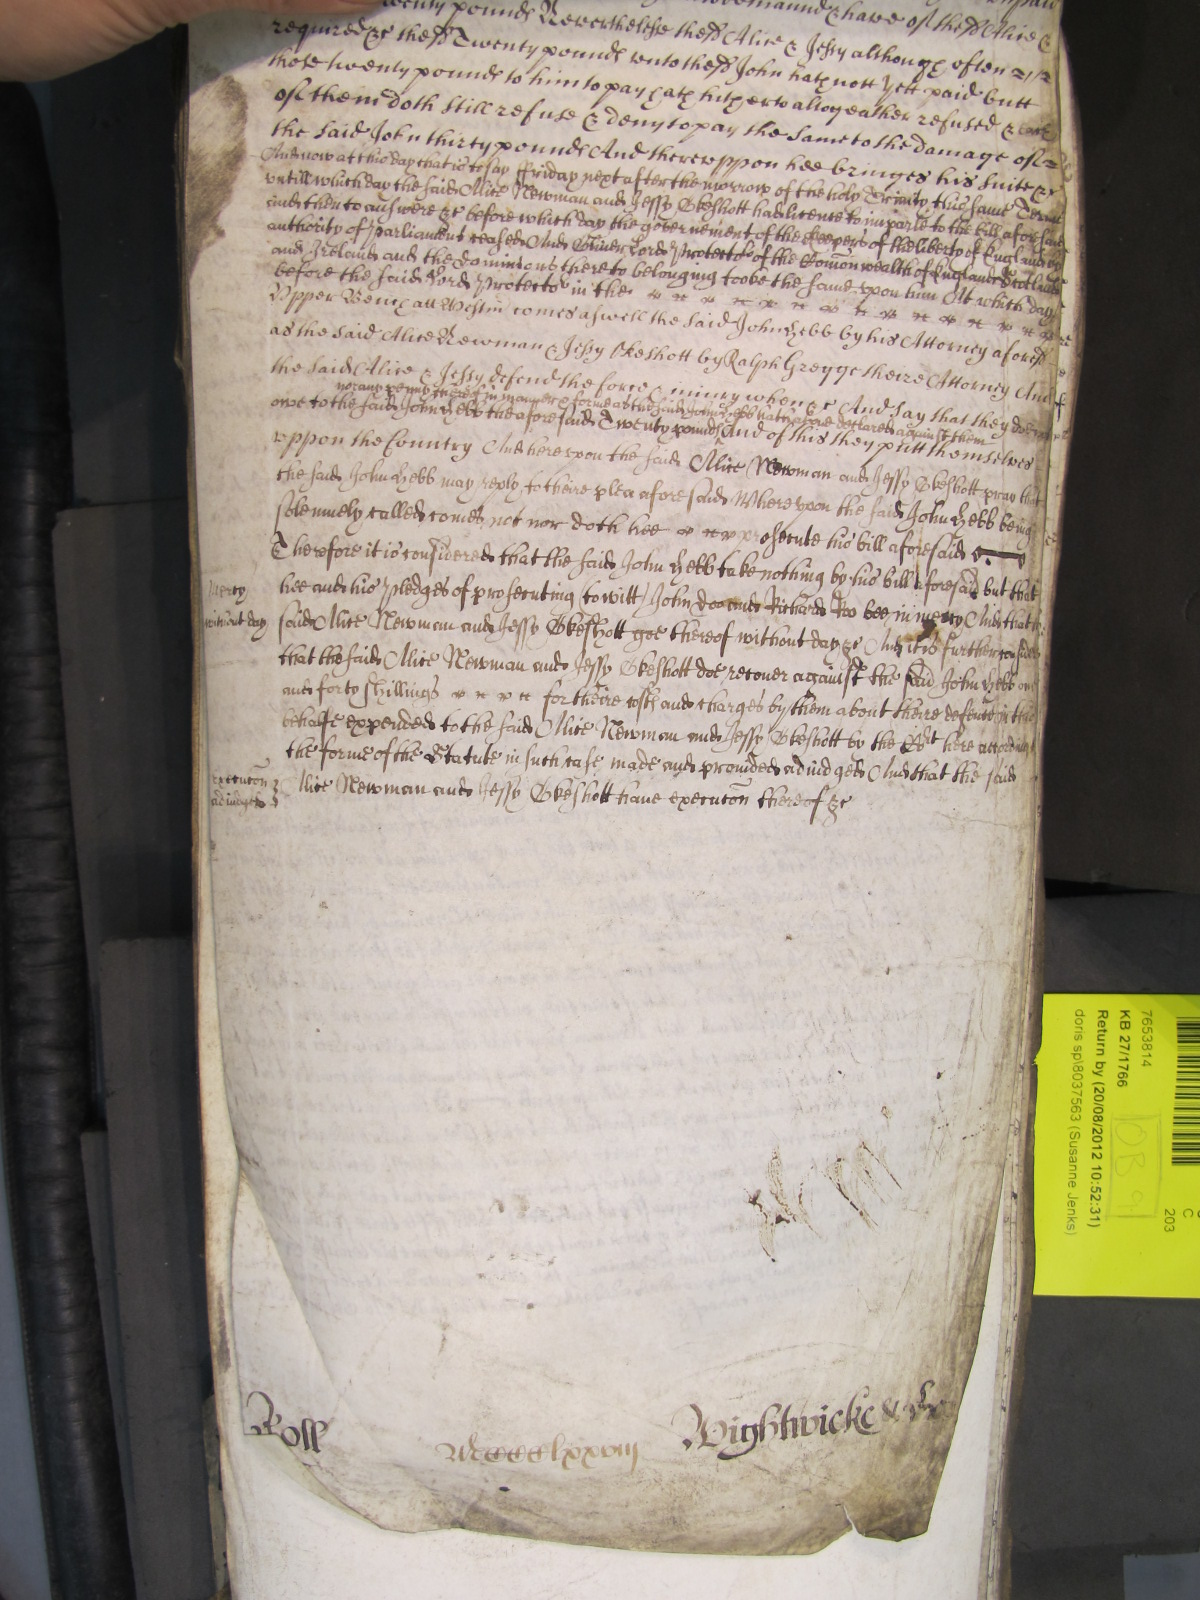 twenty pounds Neverthelesse the sd Alice &
required &c the sd Twenty pounds unto the sd John hath nott yett paid butt
those twenty pounds to him to pay hath hitherto altogeather refused & each
of them doth still refuse & deny to pay the same to the damage of the
the said John thirty pounds And thereuppon hee bringes his suite &c
And now at this day that is to say ffriday next after the morrow of the holy Trinity this same Terme
untill which day the said Alice Newman and Jessy Okeshott had licence to imparle to the bill aforesaid
and then to answere &c before which day the governement of the Keepers of the liberty of England by
authority of Parliament ceased And Oliver Lord Protector of the Comonwealth of England Scotland
and Ireland and the dominions thereto belonging tooke the same upon him At which day
before the said Lord Protector in the
Upper Bench att Westm comes aswell the said John Hebb by his Attorney aforesd
as the said Alice Newman & Jessy Okeshott by Ralph Gregge theire Attorney And
the said Alice & Jessy defend the force & iniury when &c And say that they doe not
nor any penny thereof in manner & forme as the said John Hebb hath above declared against them
owe to the said John Hebb the aforesaid Twenty pounds And of this they putt themselves
uppon the Country And hereupon the said Alice Newman and Jessy Okeshott pray that
the said John Hebb may reply to theire plea aforesaid Whereupon the said John Hebb being
solemnely called comes not nor doth hee prosecute his bill aforesaid
Therefore it is considered that the said John Hebb take nothing by his bill aforesaid but that
mercy
hee and his pledges of prosecuting (to witt) John Doe and Richard Roo bee in mercy And that the
without day
said Alice Newman and Jessy Okeshott goe thereof without day &c And it is further considered
that the said Alice Newman and Jessy Okeshott doe recover against the said John Hebb one
and forty shillings for theire costs and charges by them about theire defence in this
behalfe expended to the said Alice Newman and Jessy Okeshott by the Cort here according
the forme of the Statute in such case made and provided adiudged And that the said
execucon
adiudged
Alice Newman and Jessy Okeshott have execucon thereof &c
Roll
Mccccclxxviij
Wightwicke &
7653814
KB 27/1766
Return by (20/08/2012 10:52:31)
doris sp\8037563 (Susanne Jenks)
DB 91
C
203